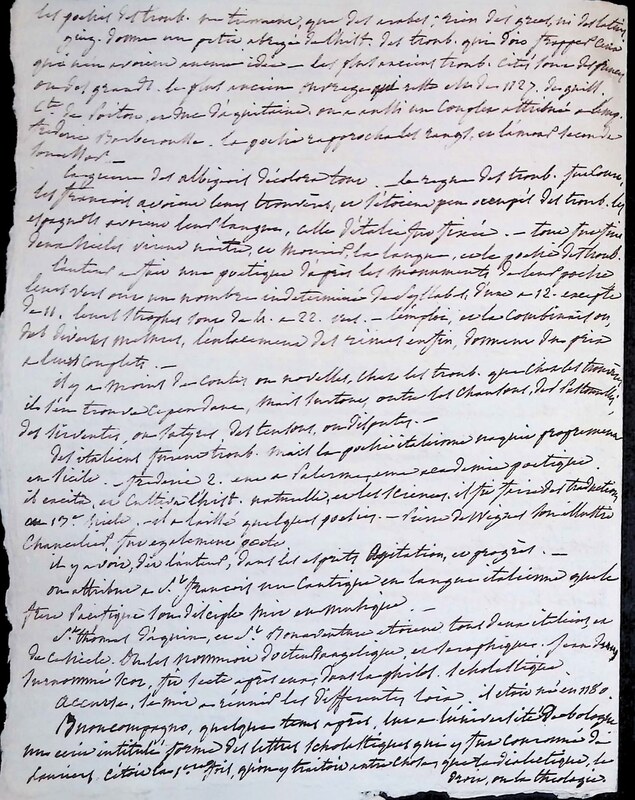 les poësies des troub. ne tiennent, que des arabes; rien des grecs, ni des latins
ging. donne un petit abrégé de l'hist. des troub. qui doit frapper ceux
qui n'en avoient aucune idée – les plus anciens troub. cités, sont des princes
ou des grands. le plus ancien ouvrage est de 1127. de guill.
Cte de Poitou, et duc d'aquitaine. on a aussi un couplet attribué à l'emp.
frédéric Barberousse. la poësie rapprocha les rangs, et l'amour seconda
la guerre des albigeois décolora tout – le regne des troub. fut court,
les françois avoient leurs trouvères, et s'étoient peu occupés des troub. les
espagnols avoient leur langue, celle d'italie fut fixée. – tout fut fini
deux siecles virent naître, et mourir, la langue, et la poësie des troub.
l'auteur a fait une poëtique d'après les monuments de leur poësie
leurs vers ont un nombre indéterminé de syllabes, d'une à 12. excepté
de 11. leurs strophes sont de à 22. vers. – l'emploi, et la combinaison,
des diverses mesures, l'entrelacement des rimes enfin, donnent du prix
à leurs couplets. –
il y a moins de contes ou novelles, chez les troub. que chez les trouvères
il s'en trouve cependant, mais surtout, outre les chansons, des Pastourelles,
des sirventes, ou satyres, des tensons, ou disputes. –
des italiens furent troub. mais la poësie italienne naquit proprement
en Sicile – frédéric 2. eut à Palerme, une académie poëtique
il excita, et cultiva l'hist. naturelle, et les sciences, il fit faire des traductions
au 13e siecle. il a laissé quelques poësies. – Pierre de Vignes son illustre
Chancelier, fut également poëte
il y avoit, dit l'auteur, dans les esprits agitation, et progrès. –
on attribue à St françois un Cantique en langue italienne que le
frère Pacifique son disciple mit en musique. –
St thomas d'aquin, et St Bonaventure étoient tous deux italiens, et
de ce siecle. On les nommoit docteur angelique, et seraphique.
surnommé Scot, fit secte après eux, dans la philos. scholastique.
Accurse, le mit à réunir les differentes loix il étoit né en 1180
Buoncompagno, quelque tems après, lut à l'université de bologne
un écrit intitulé forme des lettres scholastiques qui y fut couronné de
lauriers. c'étoit la 1ere fois, qu'on y traitoit autre chose que la dialectique, le
droit, ou la theologie.